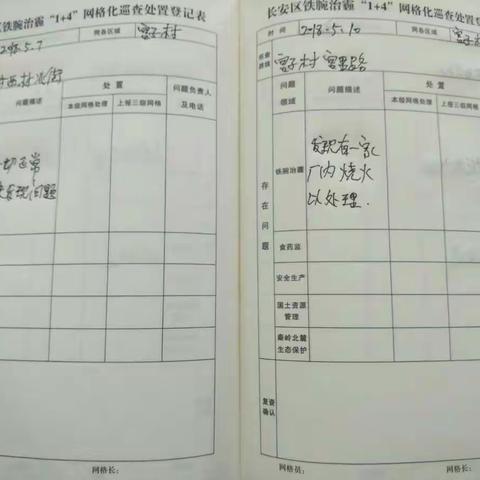 区铁腕治霾“1+4”网格化巡查处置登记表
网各区域
2018.5.7
村西村北街
问题描述
处 置
问题负责人
及电话
本级网格处理
上报三级网格
一切正常
未发现问题
网格长：
长安区铁腕治霾“1+4”网格化巡查处置登
时 间
2018.5.10
网各区域
宫子村
问题
领域
问题描述
处 置
本级网格处理
上报三级网格
存在问题
铁腕治霾
发现有一家
厂内烧火
以处理.
食药监
安全生产
国土资源
管理
秦岭北麓
生态保护
复查
确认
网格员：
网格长：